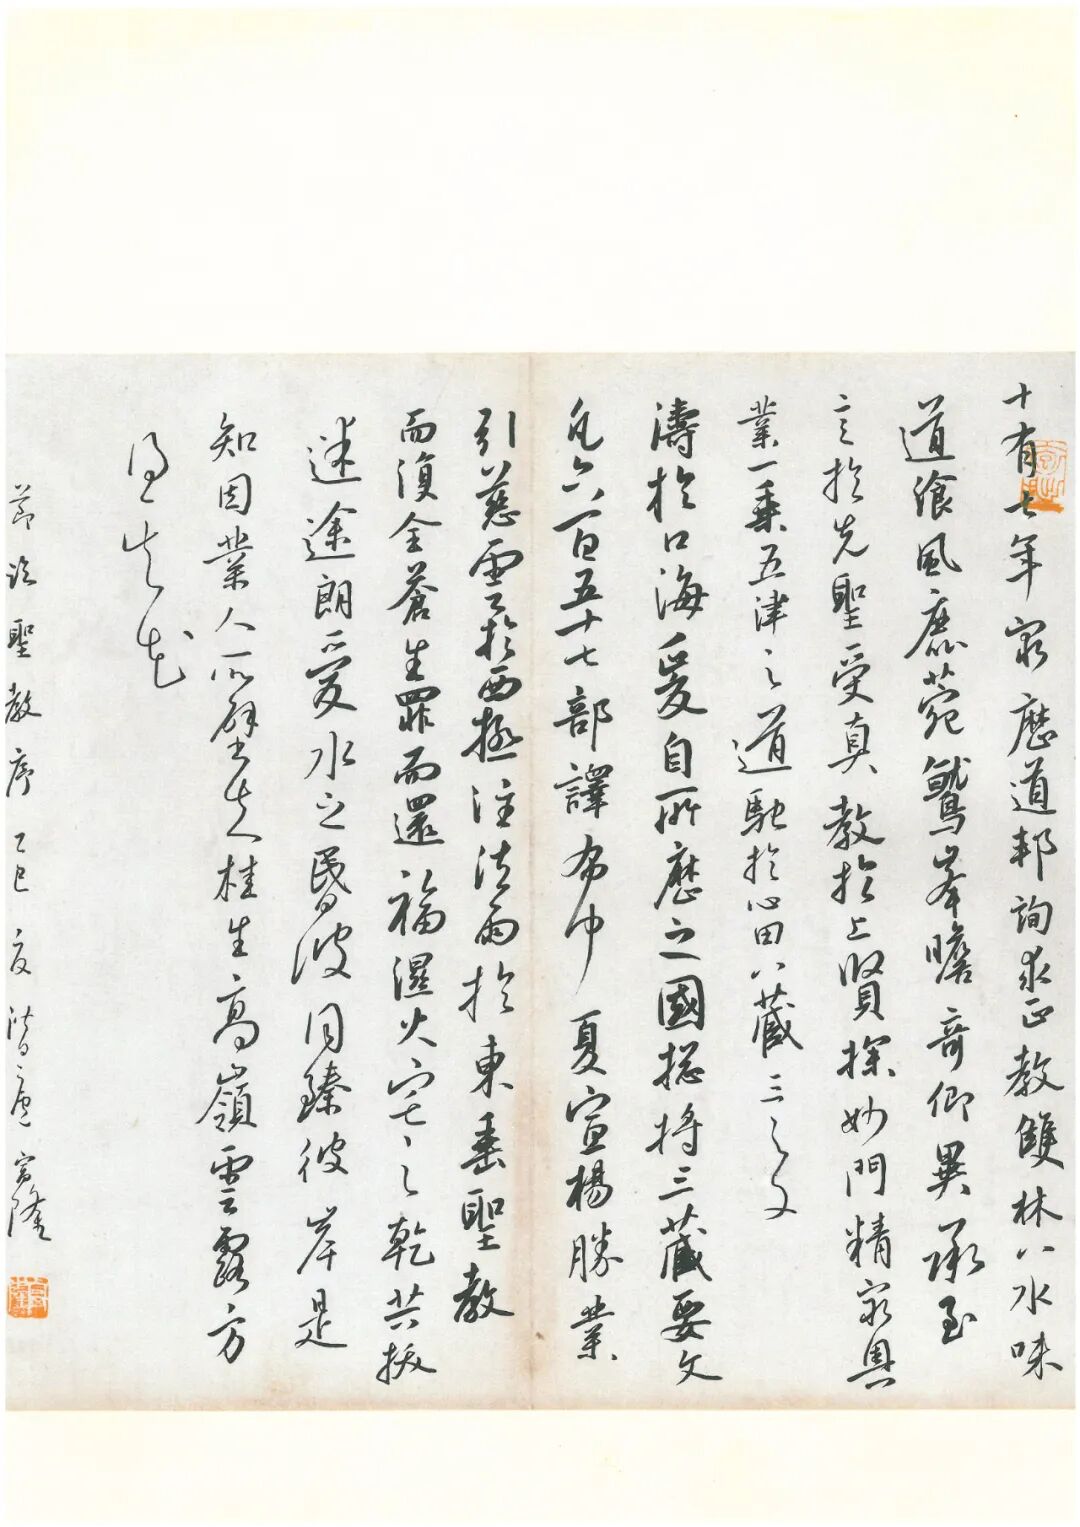 十有七年窮歷道邦詢求正教雙林八水味
道飡風鹿菀鷲峯瞻奇仰異承至
言於先聖受真教於上賢探妙門精窮奧
業一乘五津之道馳於心田八藏三之文
濤於口海爰自所歷之國捴將三藏要文
凡六百五十七部譯布中夏宣楊勝業
引慈雲於西極注法雨於東垂聖教
而復全蒼生罪而還福濕火宅之乾共拔
迷途朗愛水之昏波同臻彼岸是
知因業人所譬夫桂生高嶺雲露方
得其花
節臨聖教序乙巳夏潛廬隆